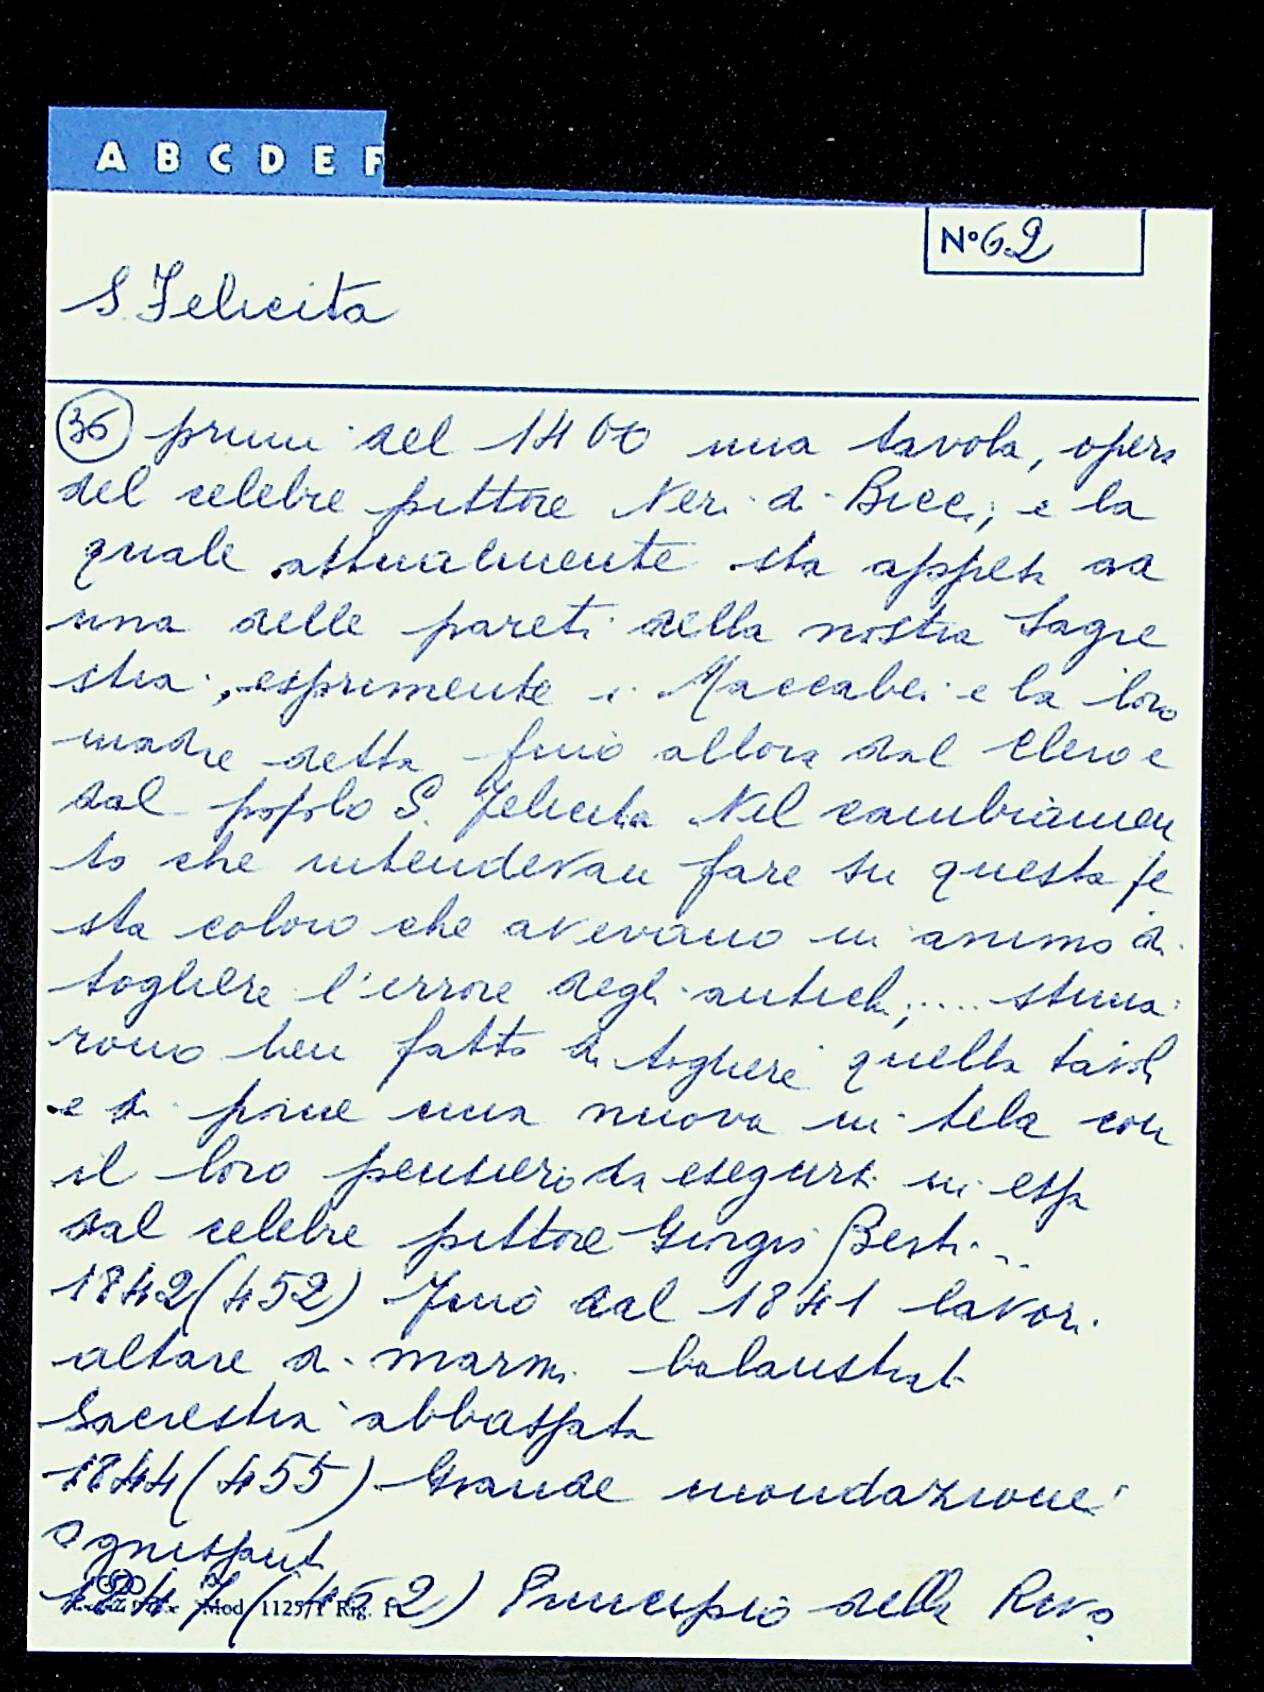 A B C D E F
N° 62
S. Felicita
36 primi del 1400 una tavola, opera
del celebre pittore Neri di Bicci; e la
quale attualmente sta appesa ad
una delle pareti della nostra Sagre
stia, esprimente i Maccabei e la loro
madre detta fino allora dal Clero e
dal popolo S. Felicita Nel cambiamen
to che intendevan fare su questa fe
sta coloro che avevano in animo di
togliere l'errore degli antichi; .... stima
rono ben fatto di togliere quella tavola
e di porne una nuova in tela con
il loro pensiero da eseguirsi in essa
dal celebre pittore Giorgio Berti ..
1842 (452) Fino dal 1841 lavori
altare di marmi balaustrati
Sacrestia abbassata
1844 (455) Grande inondazione
Ognissanti
1847 (462) Principio della Rivo
Mod. 11257/1 Rig. 1